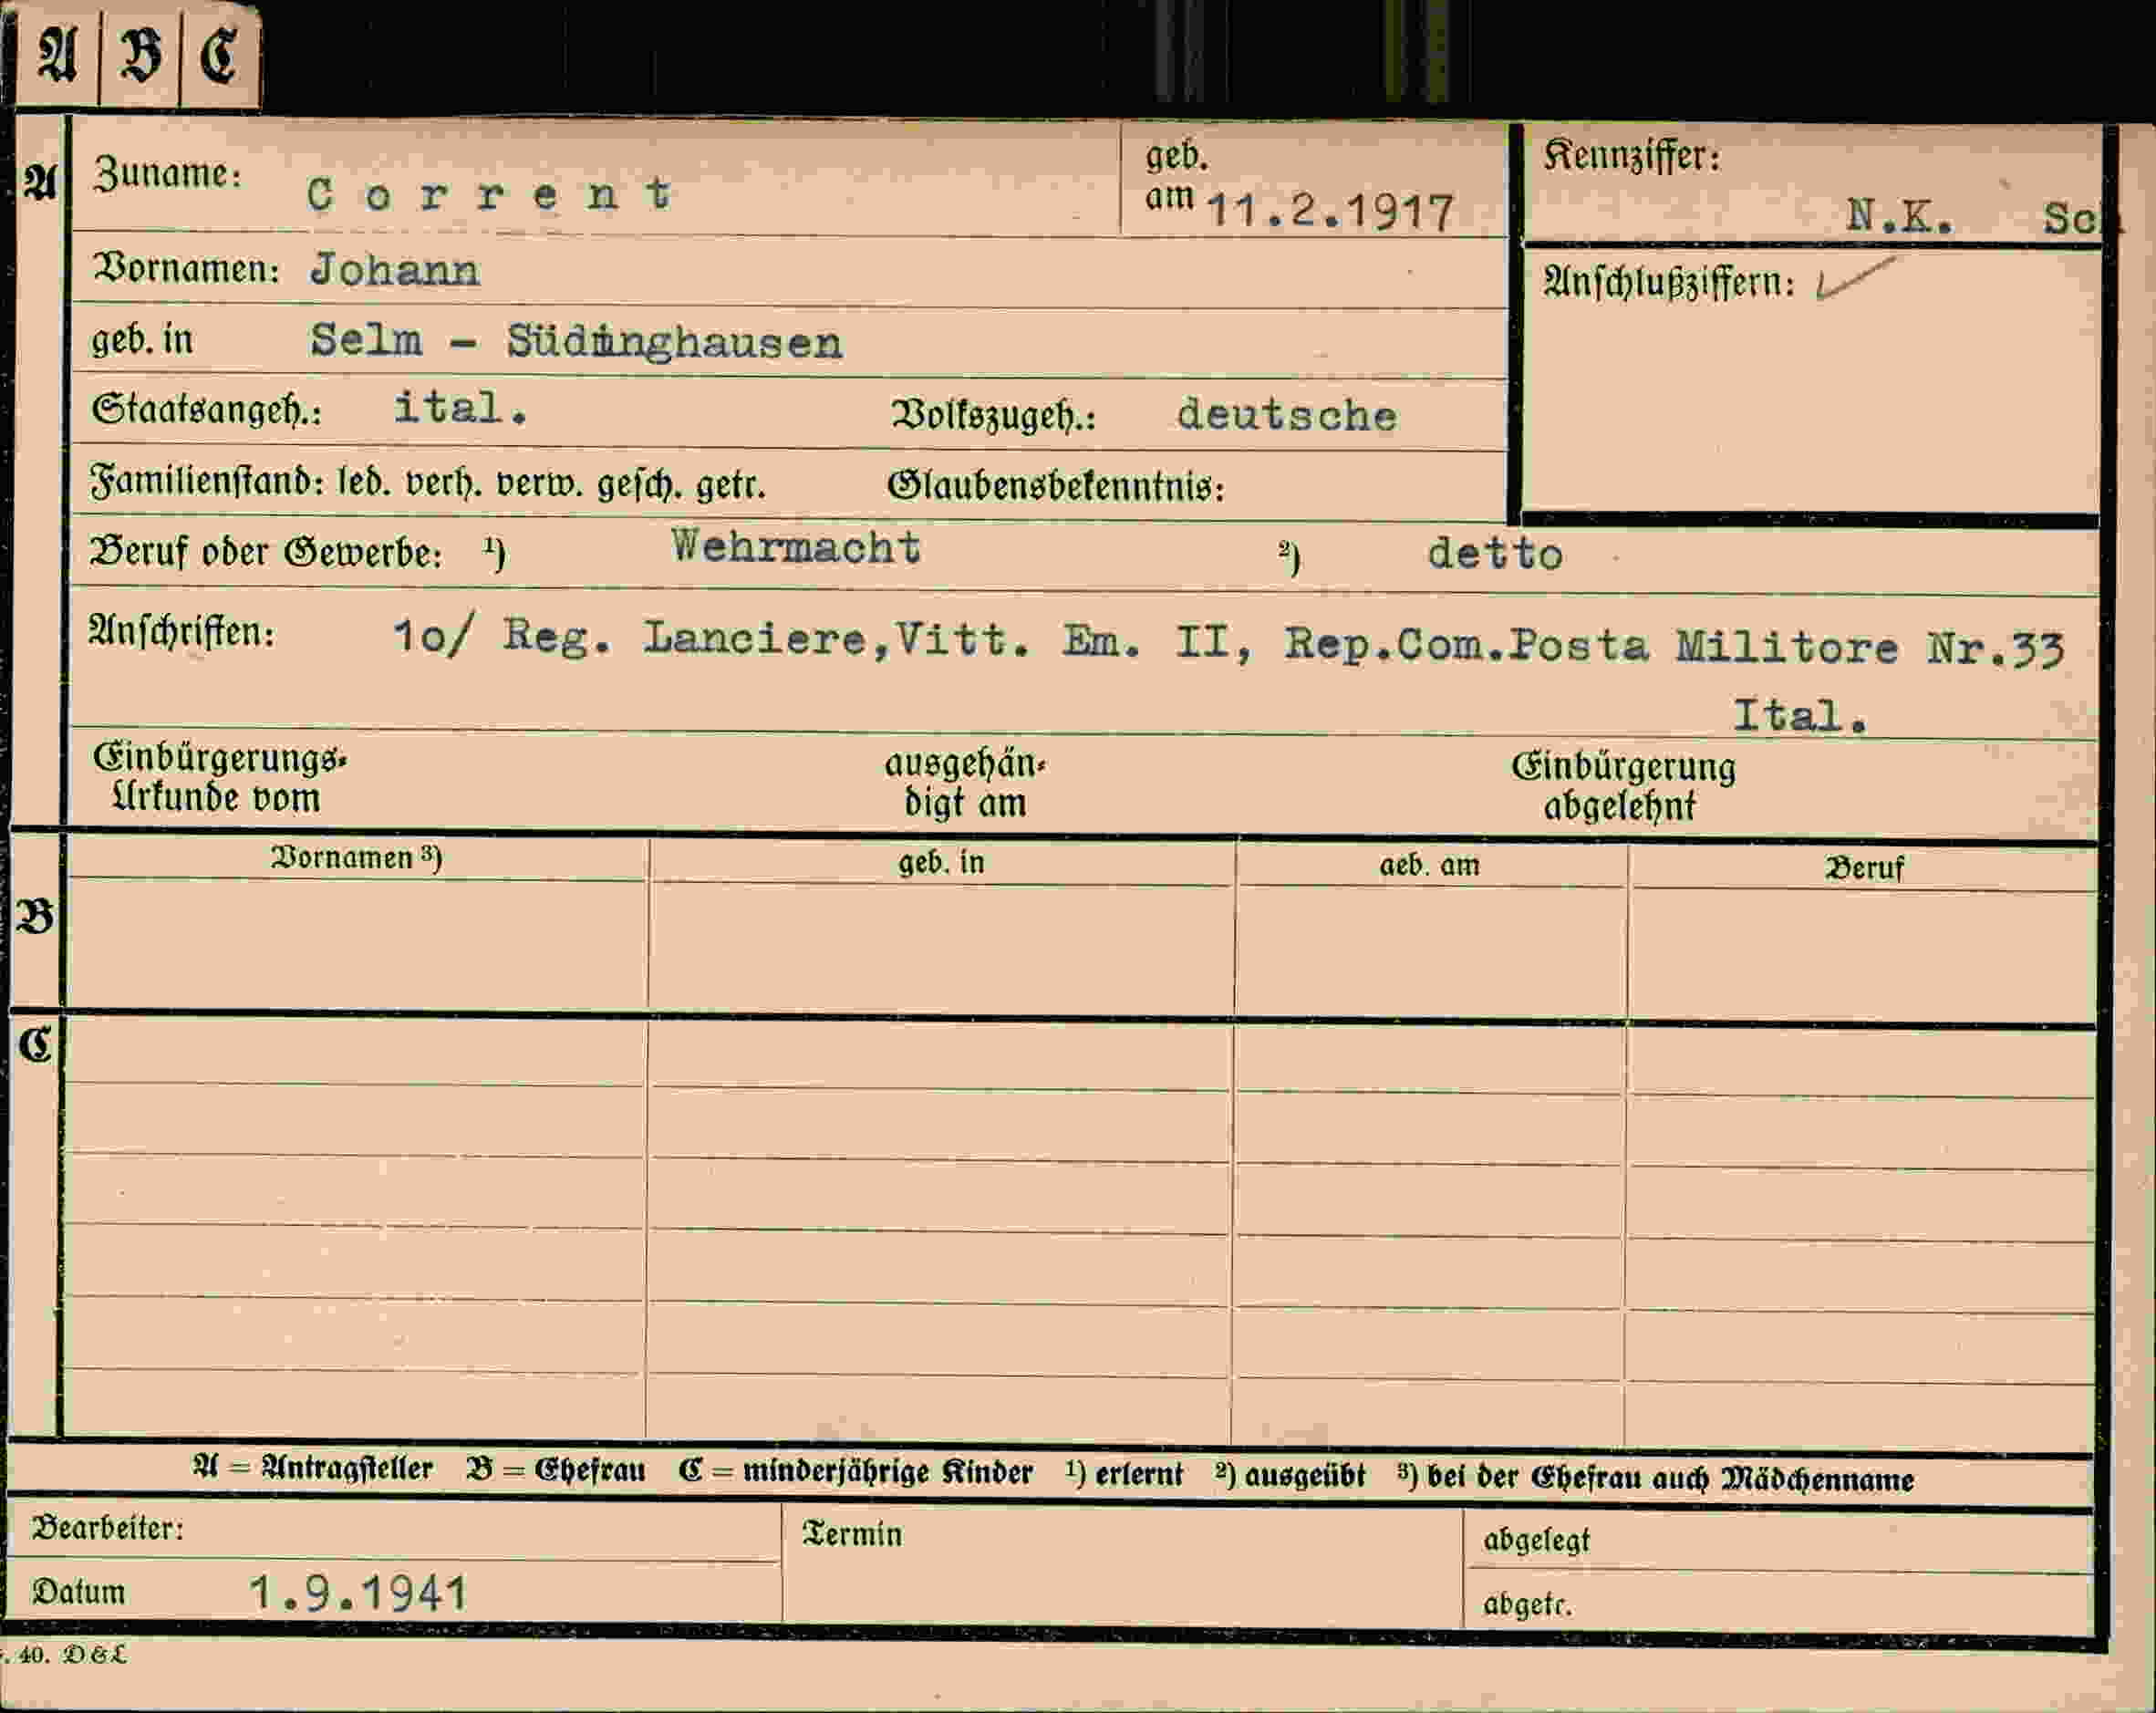 A B C
A Zuname: Corrent geb. am 11.2.1917 Kennziffer: N.K.
Vornamen: Johann Anschlußziffern:
geb. in Selm - Südinghausen
Staatsangeh.: ital. Volkszugeh.: deutsche
Familienstand: led. verh. verw. gesch. getr. Glaubensbekenntnis:
Beruf oder Gewerbe: ¹) Wehrmacht ²) detto
Anschriften: 1o/ Reg. Lanciere,Vitt. Em. II, Rep.Com.Posta Militore Nr.33
Ital.
Einbürgerungs- ausgehän- Einbürgerung
Urkunde vom digt am abgelehnt
B Vornamen ³) geb. in geb. am Beruf
C
A = Antragsteller B = Ehefrau C = minderjährige Kinder ¹) erlernt ²) ausgeübt ³) bei der Ehefrau auch Mädchenname
Bearbeiter: Termin abgelegt
Datum 1.9.1941 abgetr.
40. D & L